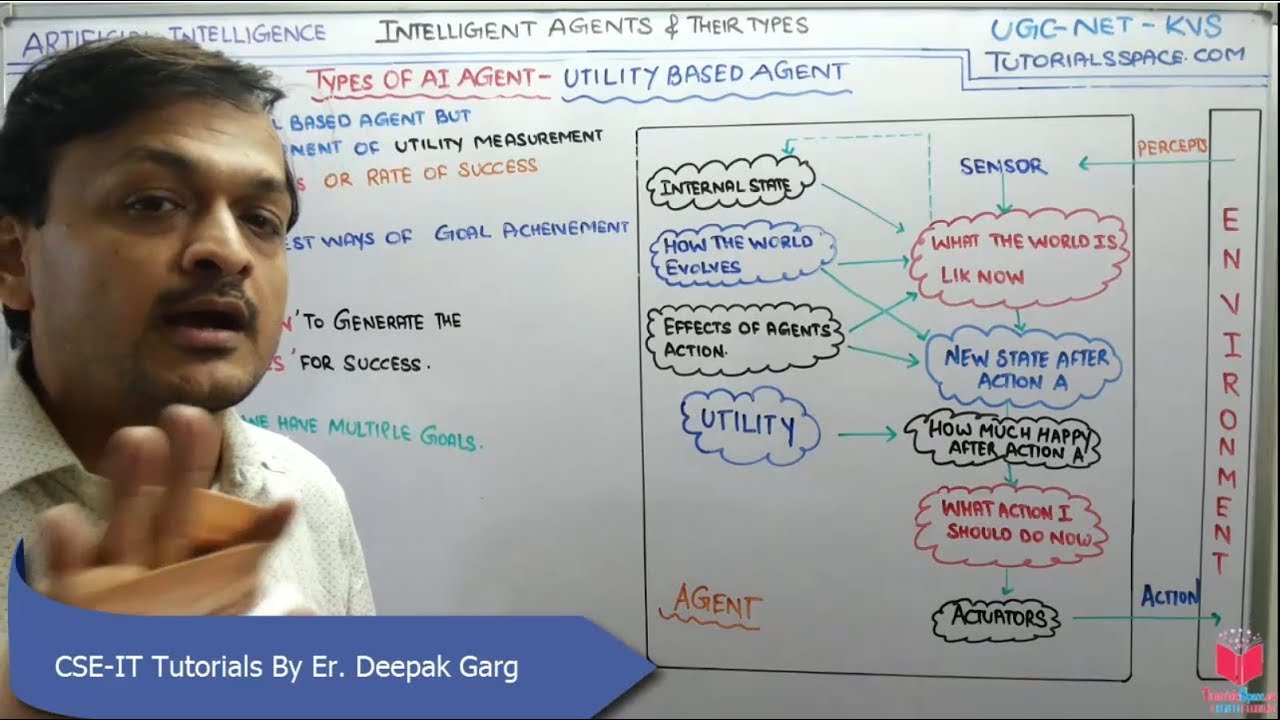 ARTIFICIAL INTELLIGENCE
INTELLIGENT AGENTS & THEIR TYPES
UGC-NET-KVS
TUTORIALSSPACE.COM
TYPES OF AI AGENT- UTILITY BASED AGENT
BASED AGENT BUT
OF UTILITY MEASUREMENT
OR RATE OF SUCCESS
WAYS OF GOAL ACHEIVEMENT
TO GENERATE THE
FOR SUCCESS.
WE HAVE MULTIPLE GOALS.
INTERNAL STATE
HOW THE WORLD
EVOLVES
EFFECTS OF AGENTS
ACTION.
UTILITY
AGENT
SENSOR
WHAT THE WORLD IS
LIK NOW
NEW STATE AFTER
ACTION A
HOW MUCH HAPPY
AFTER ACTION A
WHAT ACTION I
SHOULD DO NOW
ACTUATORS
PERCEPTS
ACTION
ENVIRONMENT
CSE-IT Tutorials By Er. Deepak Garg